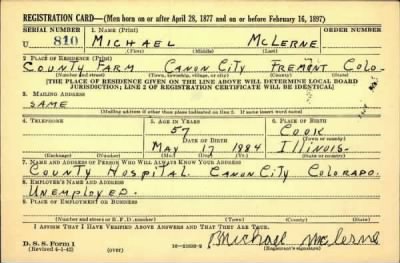 REGISTRATION CARD—(Men born on or after April 28, 1877 and on or before February 16, 1897)
SERIAL NUMBER
1. NAME (Print)
ORDER NUMBER
U 810
MICHAEL McLERNE
(First) (Middle) (Last)
2. PLACE OF RESIDENCE (Print)
COUNTY FARM CANON CITY FREMONT COLO.
(Number and street) (Town, township, village, or city) (County) (State)
[THE PLACE OF RESIDENCE GIVEN ON THE LINE ABOVE WILL DETERMINE LOCAL BOARD
JURISDICTION; LINE 2 OF REGISTRATION CERTIFICATE WILL BE IDENTICAL]
3. MAILING ADDRESS
SAME
[Mailing address if other than place indicated on line 2. If same insert word same]
4. TELEPHONE
5. AGE IN YEARS
57
6. PLACE OF BIRTH
COOK
(Town or county)
DATE OF BIRTH
MAY 17 1884
ILLINOIS.
(Exchange) (Number) (Mo.) (Day) (Yr.) (State or country)
7. NAME AND ADDRESS OF PERSON WHO WILL ALWAYS KNOW YOUR ADDRESS
COUNTY HOSPITAL. CANON CITY COLORADO.
8. EMPLOYER'S NAME AND ADDRESS
UNEMPLOYED.
9. PLACE OF EMPLOYMENT OR BUSINESS
(Number and street or R. F. D. number) (Town) (County) (State)
I AFFIRM THAT I HAVE VERIFIED ABOVE ANSWERS AND THAT THEY ARE TRUE.
D. S. S. Form 1
(Revised 4-1-42) (over)
Michael McLerne
(Registrant's signature)